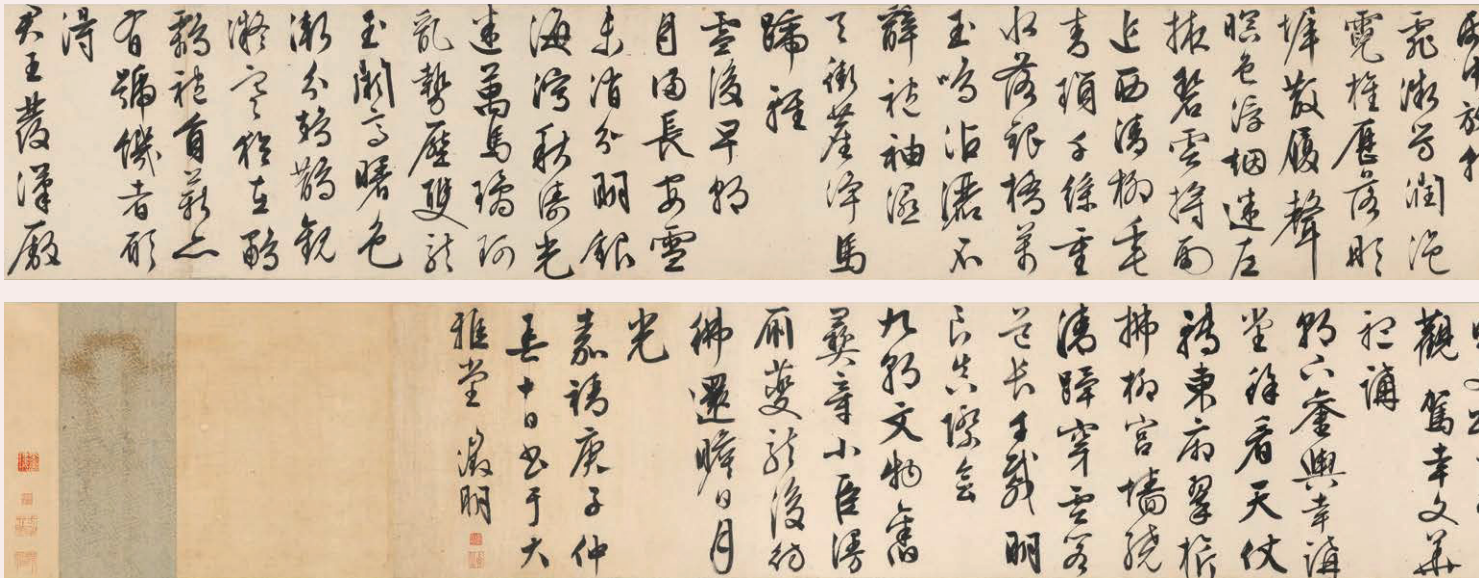 霏微芳潤浥
霓旌歷落明
墀散履聲
暝色浮烟迷左
掖碧雲將雨
近西清柳垂
青瑣千絲重
水落銀橋萬
玉鳴沾灑不
辭袍袖濕
天街塵淨馬
蹄輕
雪後早朝
月滿長安雪
未消分明銀
海瀉秋濤光
迷萬馬璚珂
亂勢壓雙龍
玉闕高曙色
漸分鳷鵲觀
凝寒猶在鷫
鸘袍有薪亦
有號饑者願
得
君王發漢廒
觀駕幸文華
講
朝下鑾輿幸講
堂許看天仗
轉東廂翠旂
拂柳宮墻繞
清蹕穿雲閣
道長千載明
良真際會
九朝文物舊
彝章小臣漫
厠夔龍後彷
彿還瞻日月
光
嘉靖庚子仲
春十日書于大
雅堂 徵明